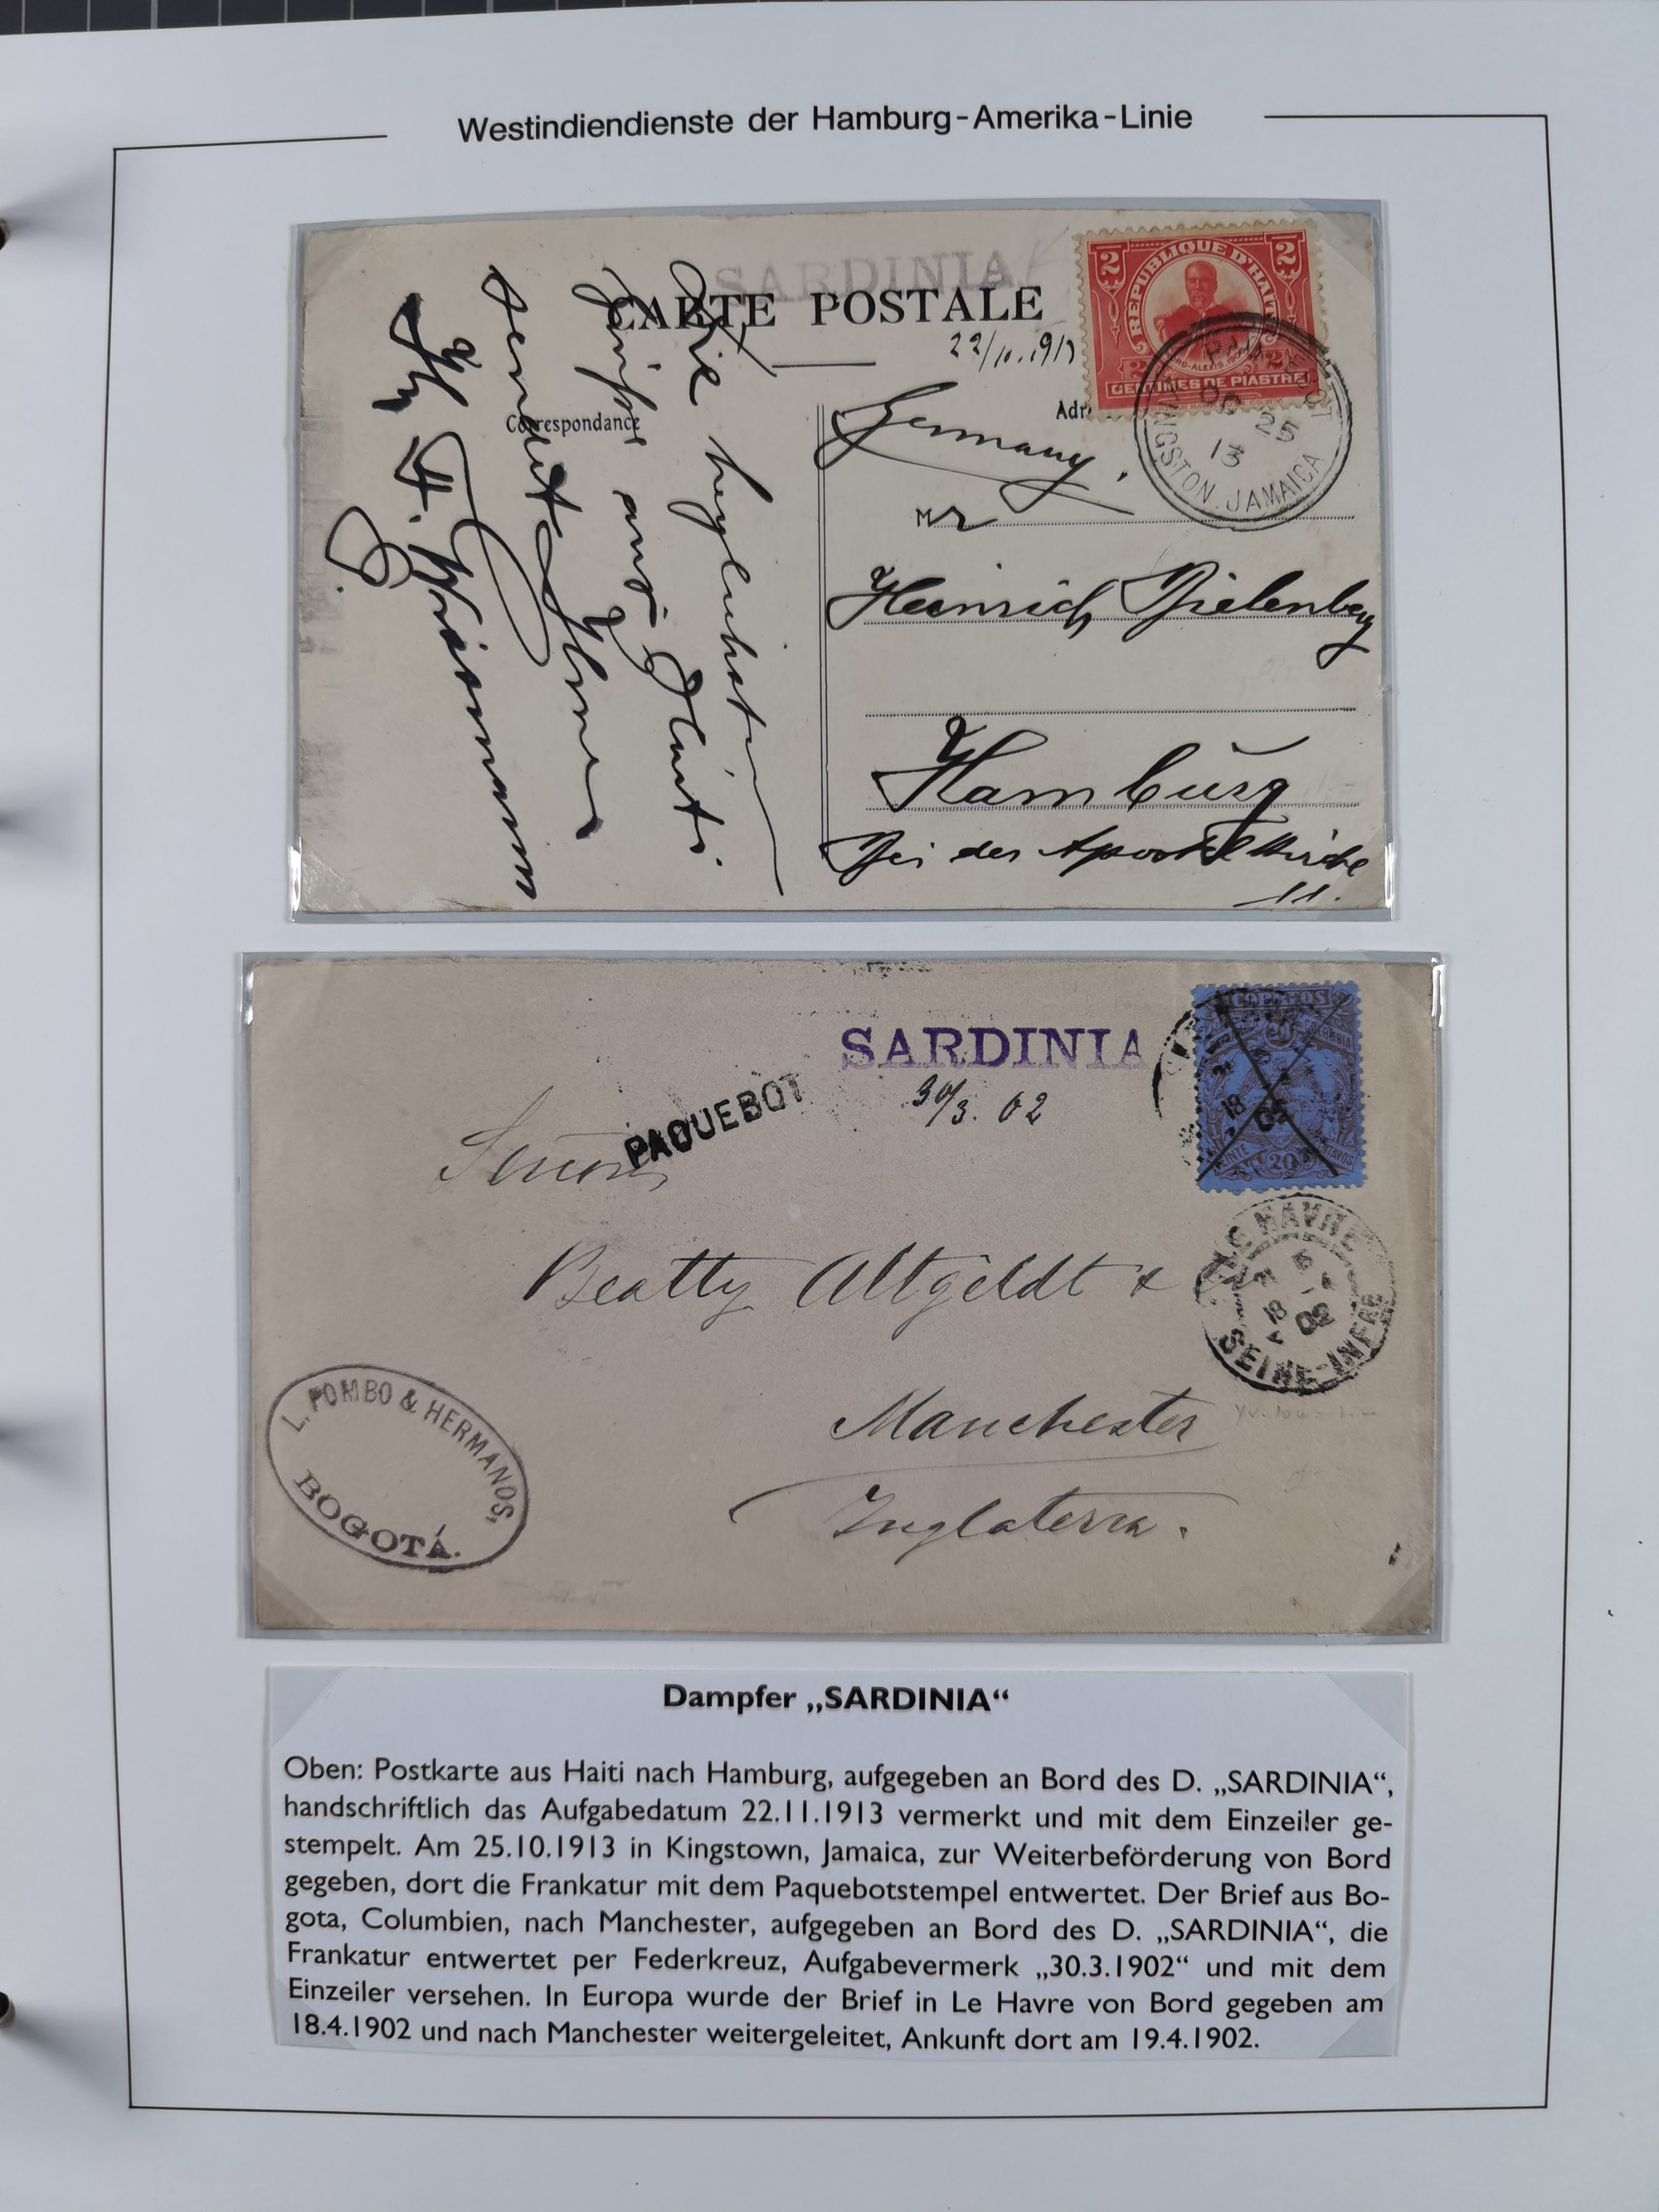 Westindiendienste der Hamburg-Amerika-Linie
SARDINIA
CARTE POSTALE
22/11.1913
Correspondance
Adr
REPUBLIQUE D'HAITI
2 2
CENTIMES DE PIASTRE
KINGSTON JAMAICA
OC 25
13
Germany.
Mr
Heinrich Bielenberg
Hamburg
Bei der Apostelkirche
11.
Die herzlichsten
Grüße aus Haiti
sendet Ihnen
Ihr
SARDINIA
30/3. 02
PAQUEBOT
CORREOS
20
COLOMBIA
Señores
Beatty Altgeldt &
Manchester
Inglaterra.
LE HAVRE
18
02
SEINE-INFRE
L. POMBO & HERMANOS,
BOGOTÁ.
Dampfer „SARDINIA“
Oben: Postkarte aus Haiti nach Hamburg, aufgegeben an Bord des D. „SARDINIA“,
handschriftlich das Aufgabedatum 22.11.1913 vermerkt und mit dem Einzeiler ge-
stempelt. Am 25.10.1913 in Kingstown, Jamaica, zur Weiterbeförderung von Bord
gegeben, dort die Frankatur mit dem Paquebotstempel entwertet. Der Brief aus Bo-
gota, Columbien, nach Manchester, aufgegeben an Bord des D. „SARDINIA“, die
Frankatur entwertet per Federkreuz, Aufgabevermerk „30.3.1902“ und mit dem
Einzeiler versehen. In Europa wurde der Brief in Le Havre von Bord gegeben am
18.4.1902 und nach Manchester weitergeleitet, Ankunft dort am 19.4.1902.